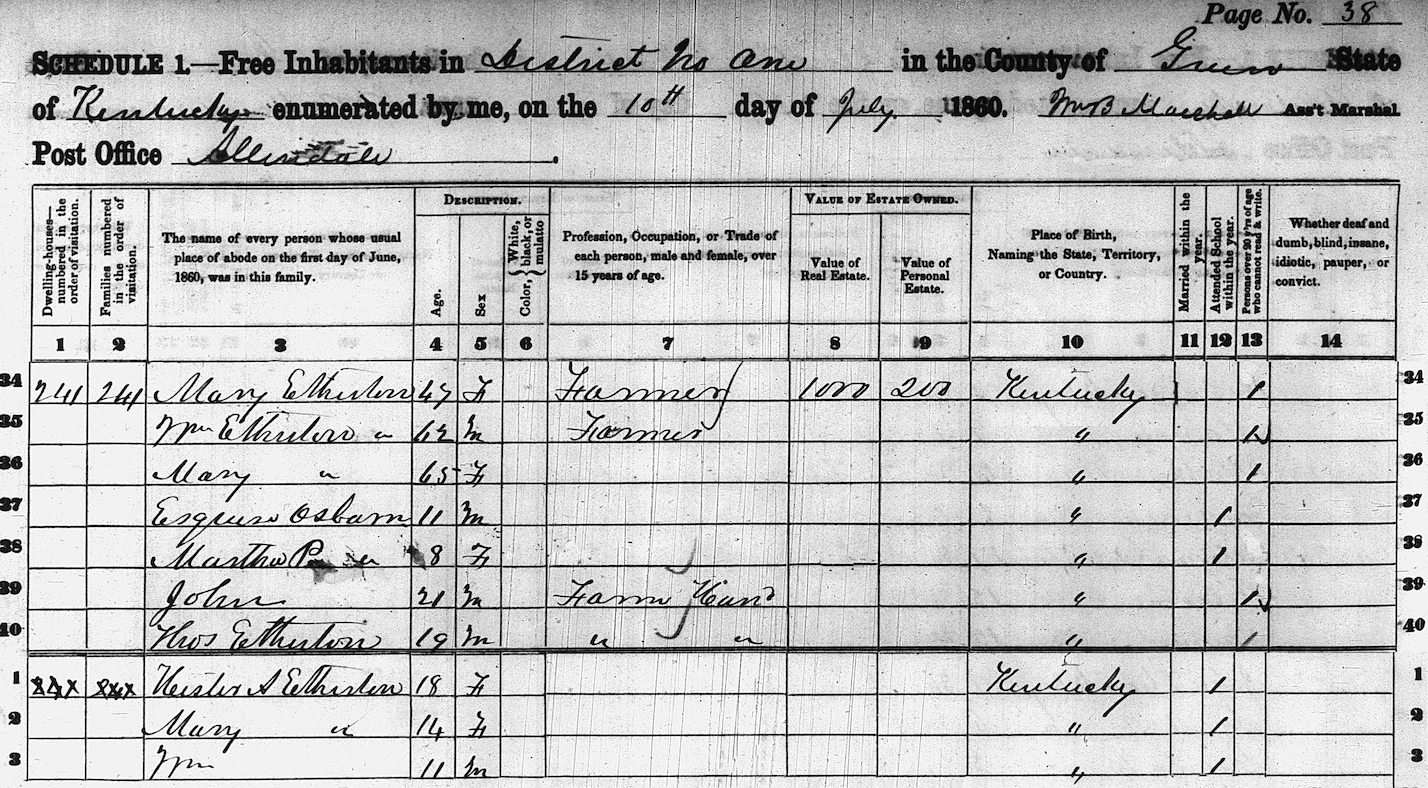 Page No. 38
SCHEDULE 1.—Free Inhabitants in District No One in the County of Green State
of Kentucky enumerated by me, on the 10th day of July 1860. Wm B Marshall Ass't Marshal
Post Office Allendale.
Dwelling-houses—numbered in the order of visitation.
Families numbered in the order of visitation.
The name of every person whose usual place of abode on the first day of June, 1860, was in this family.
DESCRIPTION.
Age.
Sex
Color, { White, black, or mulatto
Profession, Occupation, or Trade of each person, male and female, over 15 years of age.
VALUE OF ESTATE OWNED.
Value of Real Estate.
Value of Personal Estate.
Place of Birth, Naming the State, Territory, or Country.
Married within the year.
Attended School within the year.
Persons over 20 y'rs of age who cannot read & write.
Whether deaf and dumb, blind, insane, idiotic, pauper, or convict.
1 2 3 4 5 6 7 8 9 10 11 12 13 14
34 241 241 Mary Etherton 47 F Farmer 1000 200 Kentucky 1 34
35 Wm Etherton " 62 M Farmer " 1 35
36 Mary " 65 F " 1 36
37 Esquire Osburn 11 M " 1 37
38 Martha " 8 F " 1 38
39 John 21 M Farm Hand " 1 39
40 Thos Etherton 19 M " " " 1 40
1 Hester A Etherton 18 F Kentucky 1 1
2 Mary " 14 F " 1 2
3 Wm 11 M " 1 3